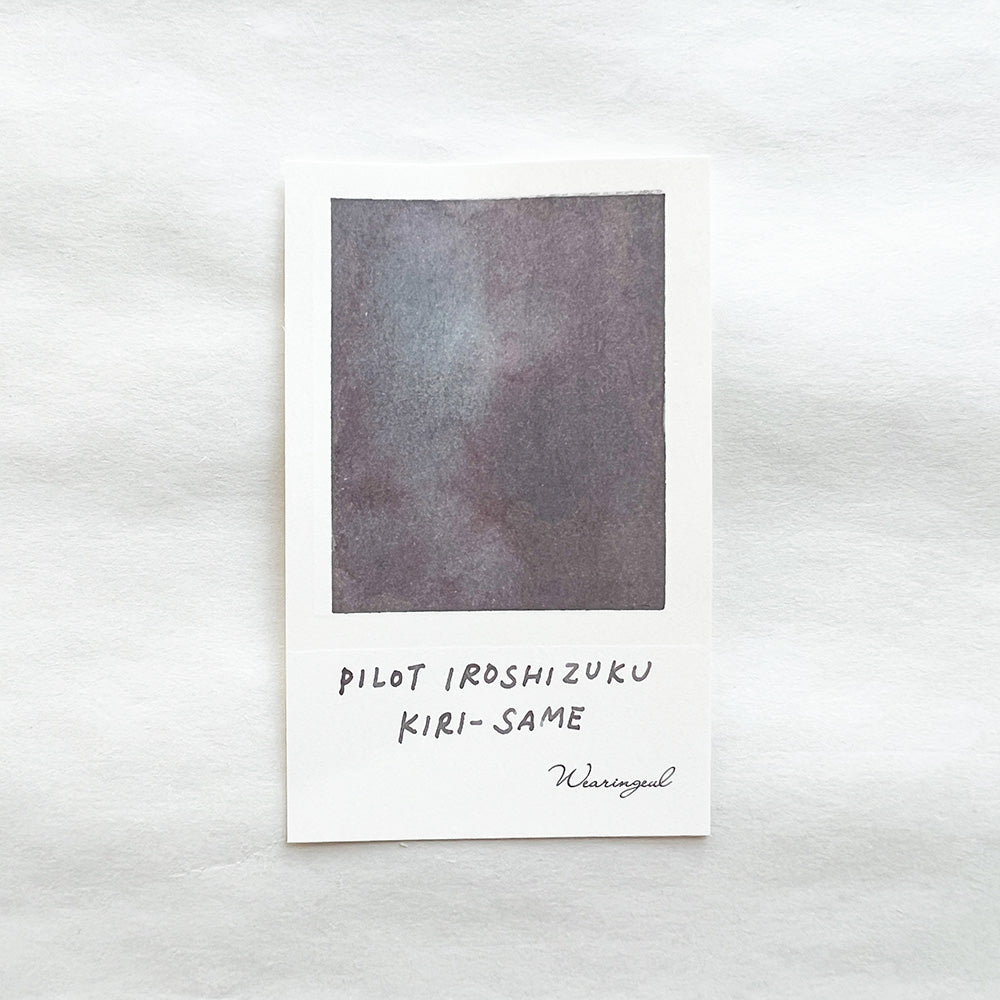 PILOT IROSHIZUKU
KIRI-SAME
Wearingeul